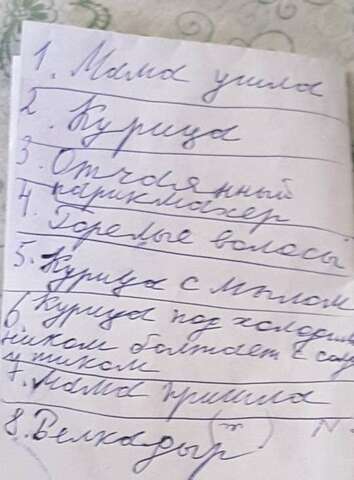 1. Мама ушла
2. Курица
3. Отчаянный
парикмахер
4. Горелые волосы
5. Курица с мылом
6 Курица под холодиль
ником болтает с
утюком
7. Мама пришла
8. Белкадыр (т)